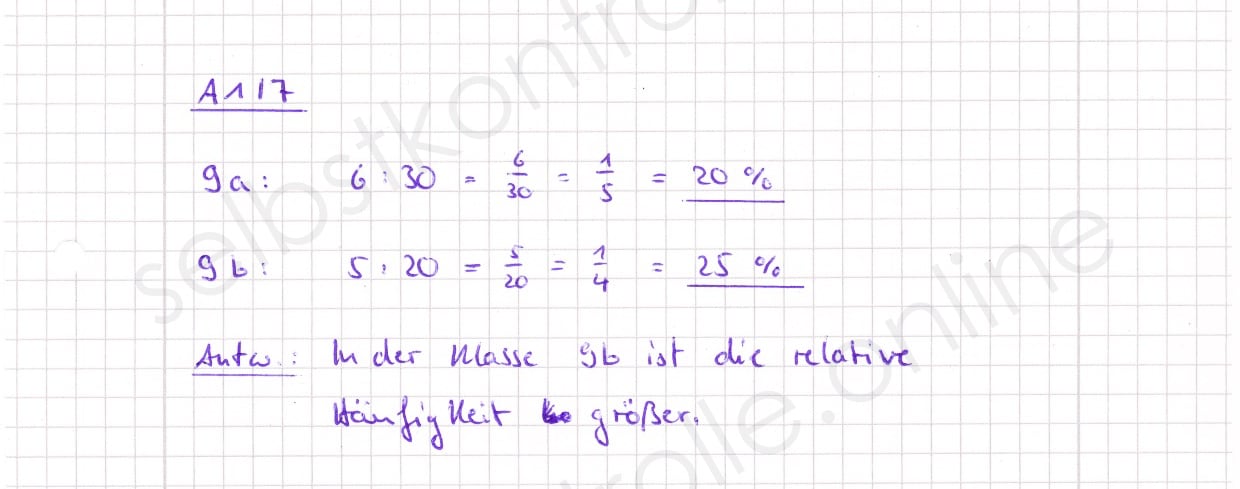 A1/7
9a: 6 : 30 = 6/30 = 1/5 = 20 %
9b: 5 : 20 = 5/20 = 1/4 = 25 %
Antw.: In der Klasse 9b ist die relative
Häufigkeit größer.
selbstkontrolle.online
rolle.online